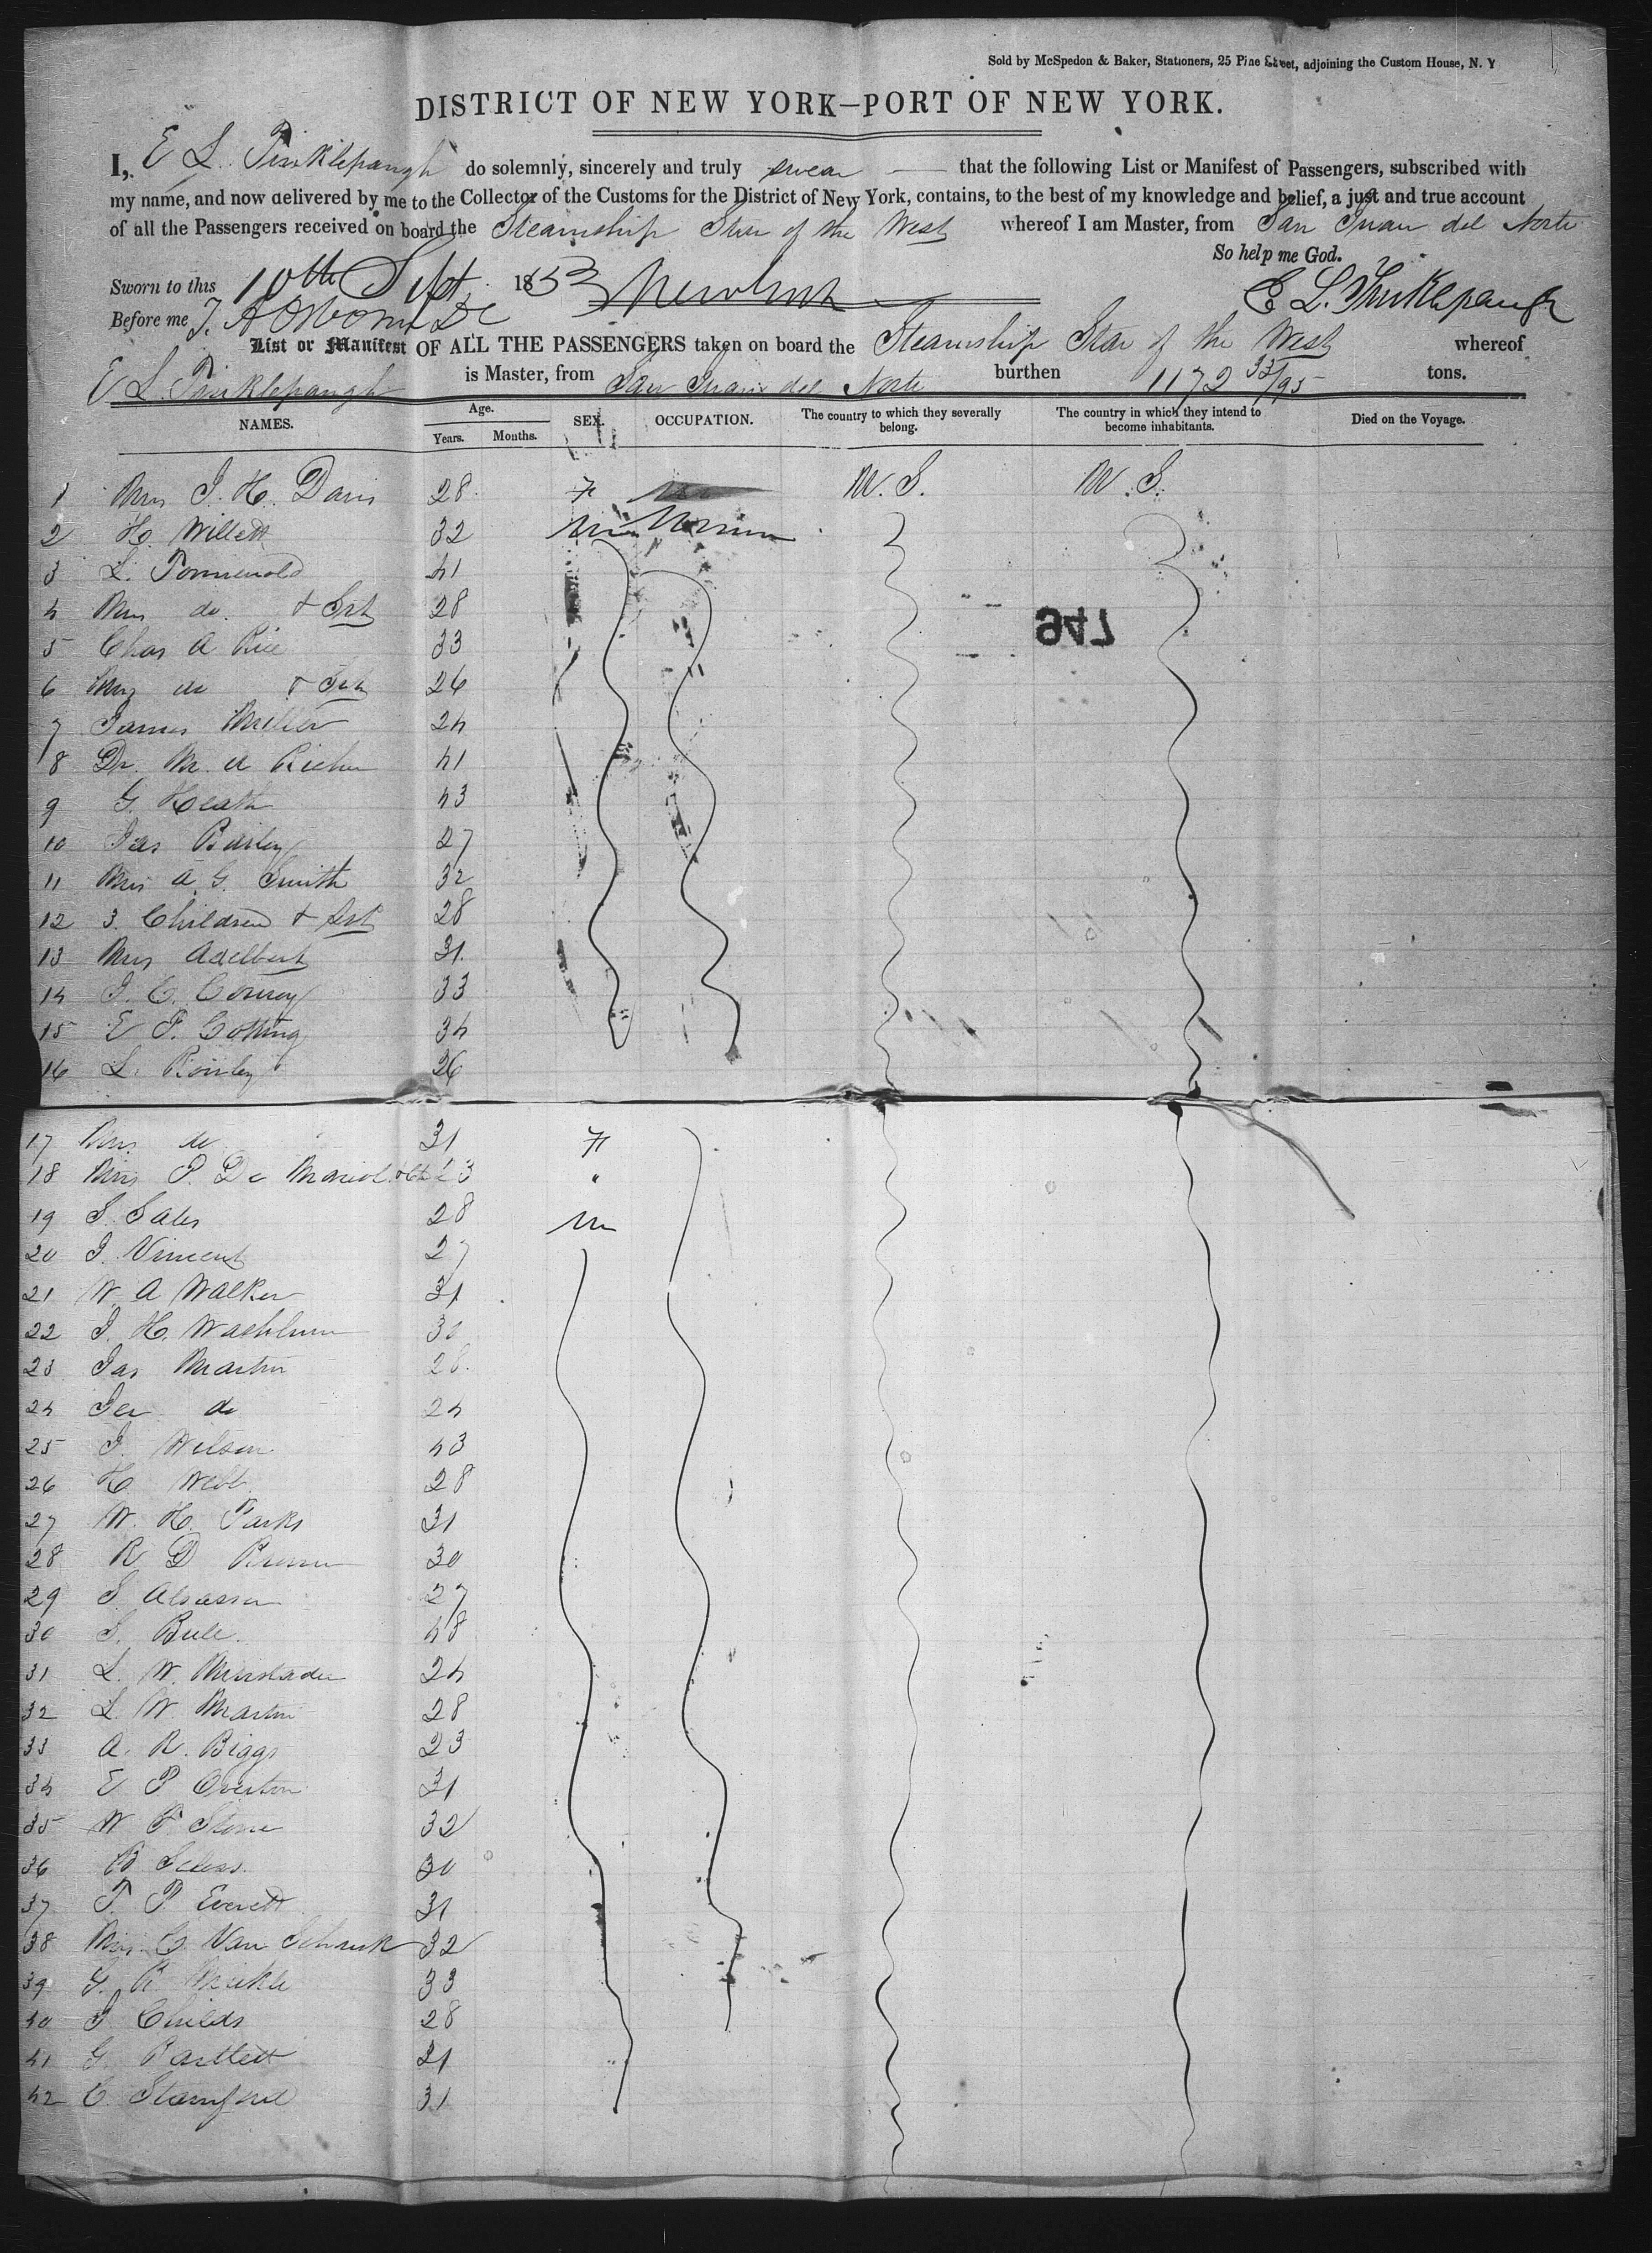 Sold by McSpedon & Baker, Stationers, 25 Pine Street, adjoining the Custom House, N. Y
DISTRICT OF NEW YORK—PORT OF NEW YORK.
I, E L. Tinklepaugh do solemnly, sincerely and truly swear that the following List or Manifest of Passengers, subscribed with
my name, and now delivered by me to the Collector of the Customs for the District of New York, contains, to the best of my knowledge and belief, a just and true account
of all the Passengers received on board the Steamship Star of the West whereof I am Master, from San Juan del Norte
So help me God.
Sworn to this 10th Sept 1853
E L. Tinklepaugh
Before me
List or Manifest OF ALL THE PASSENGERS taken on board the Steamship Star of the West whereof
E L Tinklepaugh is Master, from San Juan del Norte burthen 1172 33/95 tons.
NAMES. Age. Years. Months. SEX. OCCUPATION. The country to which they severally belong. The country in which they intend to become inhabitants. Died on the Voyage.
1 Mrs J. H. Davis 28 F U. S. U. S.
2 H. Willett 32
3 L. 41
4 Mrs do. & Svt 28
5 Chas A Rice 33
947
6 Mrs do & Svt 26
7 James Miller 24
8 Dr. M. A 41
9 G. Heath 43
10 Jas Bailey 27
11 Mrs A. G. Smith 32
12 3 Children & Svt 28
13 Mrs Adelbert 31.
14 J. C. Conroy 33
15 E P. Cotting 34
16 L. Rowley 26
17 Mrs do 31 F
18 Mrs P. De "
19 S. Sales 28 M
20 J Vincent 27
21 W. A Walker 31
22 J. H. Washburn 30
23 Jas Martin 28.
24 Jer do 24
25 J. Wilson 43
26 H Webb 28
27 W. H. Parks 31
28 R D 30
29 S. 27
30 S. Bule. 48
31 L. W. 24
32 L. W. Martin 28
33 A. R. Biggs 23
34 E P Overton 31
35 W P Stone 32
36 B 30
37 T. P Everett 31
38 Mrs. C. Van Schaick 32
39 G. R Meikle 33
40 J Childs 28
41 G. Bartlett 21
42 C. Stamford 31